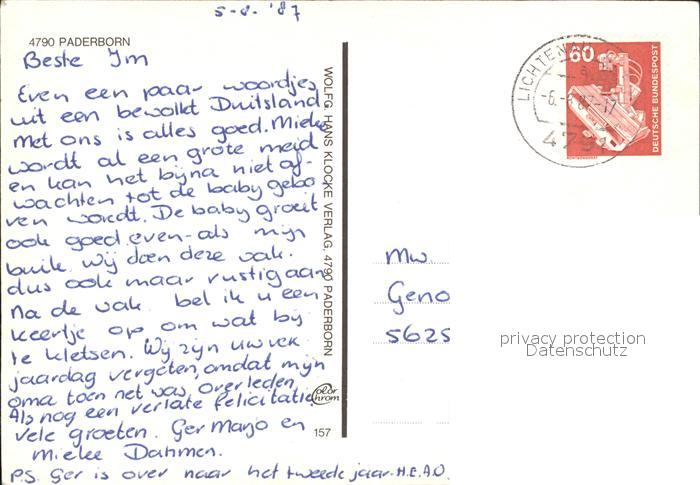 5-8-'87
4790 PADERBORN
Beste Im
Even een paar woordjes
uit een bewolkt Duitsland
Met ons is alles goed. Mieke
wordt al een grote meid
en kan het bijna niet af-
wachten tot de baby gebo
ren wordt. De baby groeit
ook goed even-als mijn
buik. Wij doen deze vak.
dus ook maar rustig aan
Na de vak. bel ik u een
keertje op om wat bij
te kletsen. Wij zijn uw vek
jaardag vergeten, omdat mijn
oma toen net was overleden,
Als nog een verlate felicitatie
Vele groeten. Ger Marjo en
Mieke Dahmen.
P.S. Ger is over naar het tweede jaar H.E.A.O.
WOLFG. HANS KLOCKE VERLAG, 4790 PADERBORN
color
chrom
157
LICHTENAU
-6.-8.87-17
479
60
DEUTSCHE BUNDESPOST
Mw
Geno
5625
privacy protection
Datenschutz